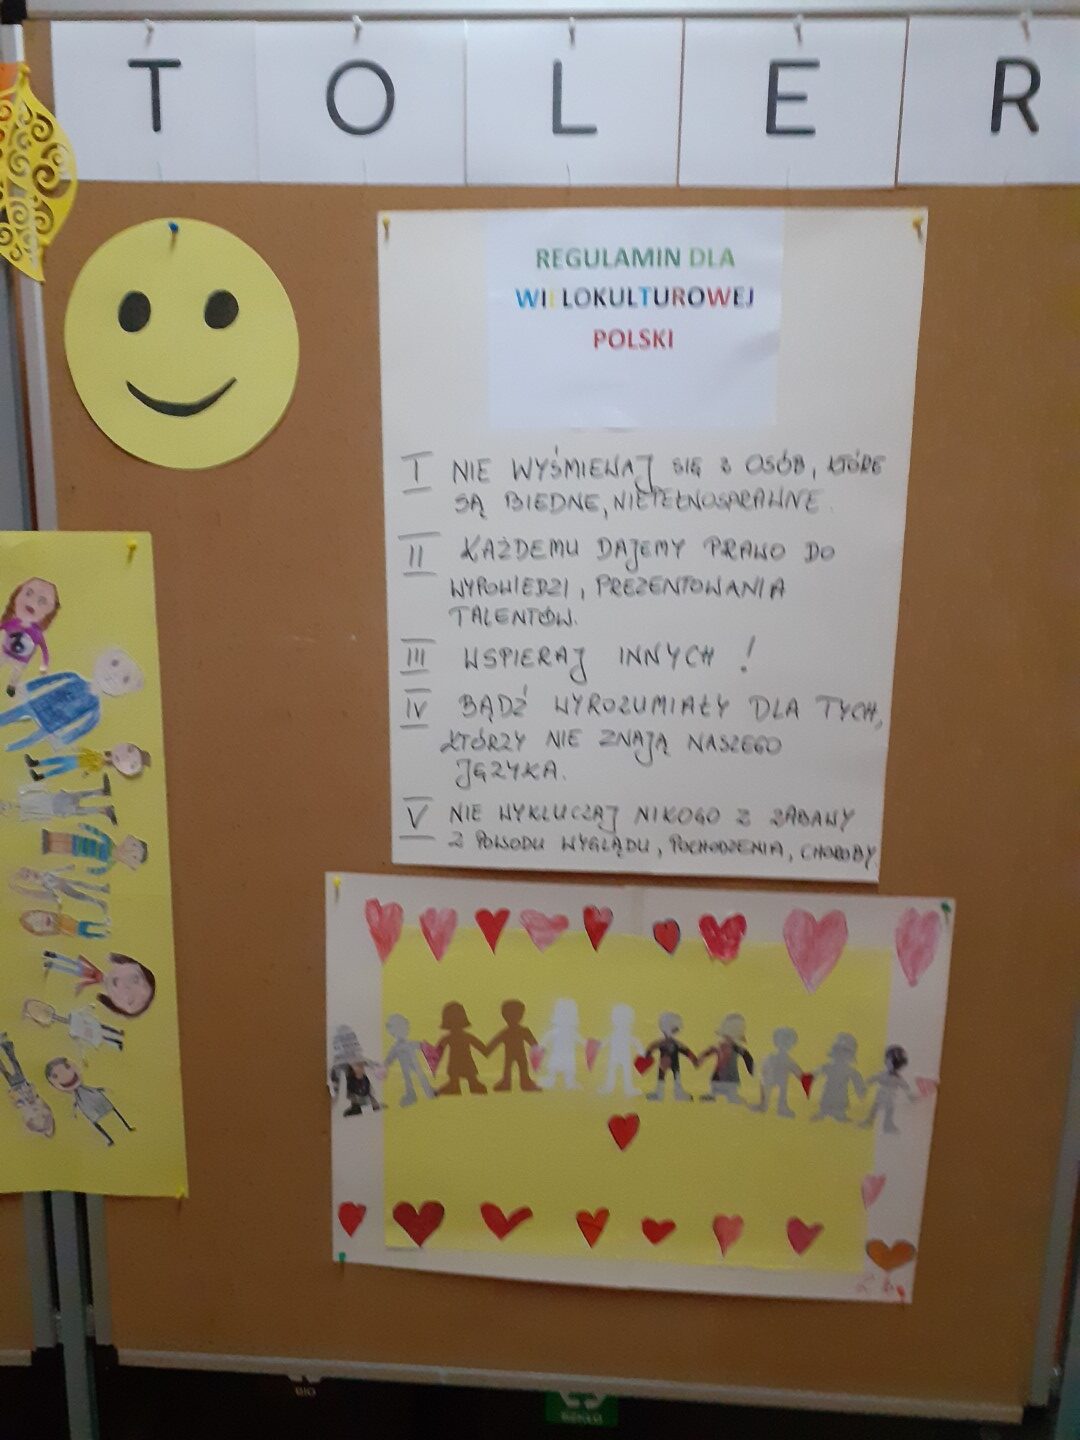 T O L E R
REGULAMIN DLA
WIELOKULTUROWEJ
POLSKI
I NIE WYŚMIEWAJ SIĘ Z OSÓB, KTÓRE
SĄ BIEDNE, NIEPEŁNOSPRAWNE.
II KAŻDEMU DAJEMY PRAWO DO
WYPOWIEDZI, PREZENTOWANIA
TALENTÓW.
III WSPIERAJ INNYCH !
IV BĄDŹ WYROZUMIAŁY DLA TYCH,
KTÓRZY NIE ZNAJĄ NASZEGO
JĘZYKA.
V NIE WYKLUCZAJ NIKOGO Z ZABAWY
Z POWODU WYGLĄDU, POCHODZENIA, CHOROBY
BIO